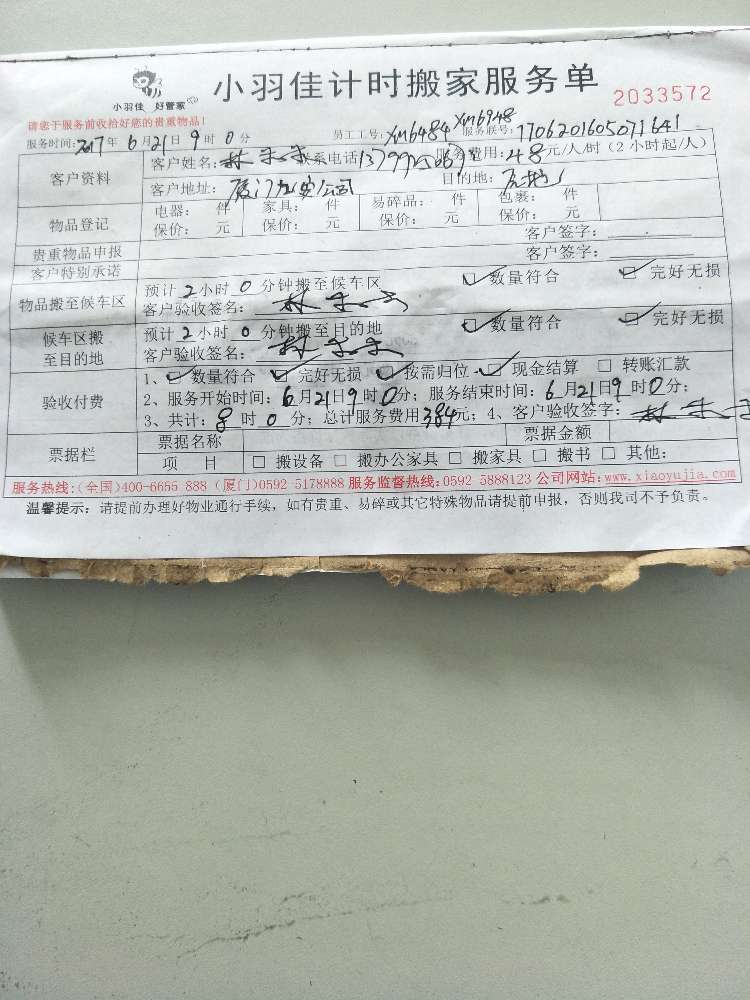 小羽佳计时搬家服务单
小羽佳 好管家
2033572
请您于服务前收拾好您的贵重物品!
服务时间:2017年6月21日9时0分 员工工号:XM6484 XM6948 服务联号:1706201605071641
客户资料
客户姓名:林 联系电话13799 服务费用:48元/人/时(2小时起/人)
客户地址:厦门 公司 目的地:
物品登记
电器: 件 家具: 件 易碎品: 件 包裹: 件
保价: 元 保价: 元 保价: 元 保价: 元
贵重物品申报 客户签字:
客户特别承诺 客户签字:
物品搬至候车区
预计2小时0分钟搬至候车区 ☑数量符合 ☑完好无损
客户验收签名:林
候车区搬至目的地
预计2小时0分钟搬至目的地 ☑数量符合 ☑完好无损
客户验收签名:林
验收付费
1、☑数量符合 ☑完好无损 ☑按需归位 ☑现金结算 □转账汇款
2、服务开始时间:6月21日9时0分;服务结束时间:6月21日9时0分;
3、共计:8时0分;总计服务费用384元;4、客户验收签字:林
票据栏
票据名称 票据金额
项 目 □搬设备 □搬办公家具 □搬家具 □搬书 □其他:
服务热线:(全国)400-6655 888 (厦门)0592 5178888 服务监督热线:0592 5888123 公司网站:www.xiaoyujia.com
温馨提示:请提前办理好物业通行手续,如有贵重、易碎或其它特殊物品请提前申报,否则我司不予负责。